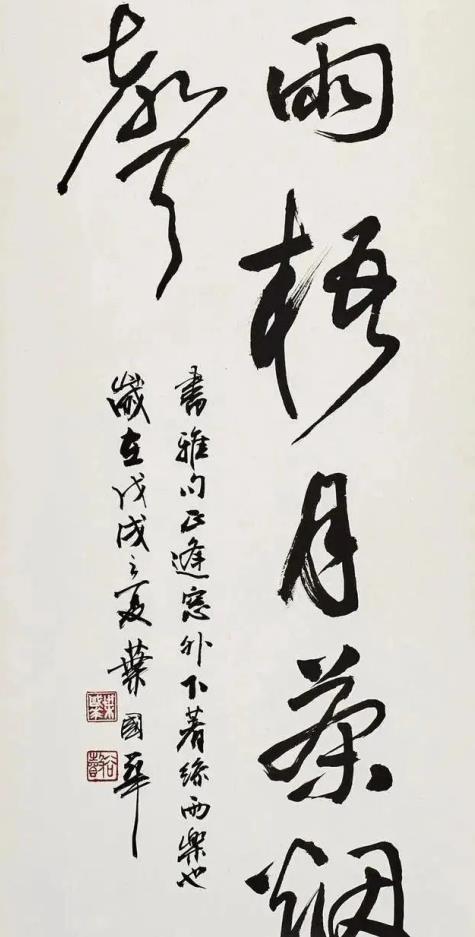 雨梧月茶烟
聲
書雅句正逢窓外下着絲雨樂也
歲在戊戌之夏葉國華